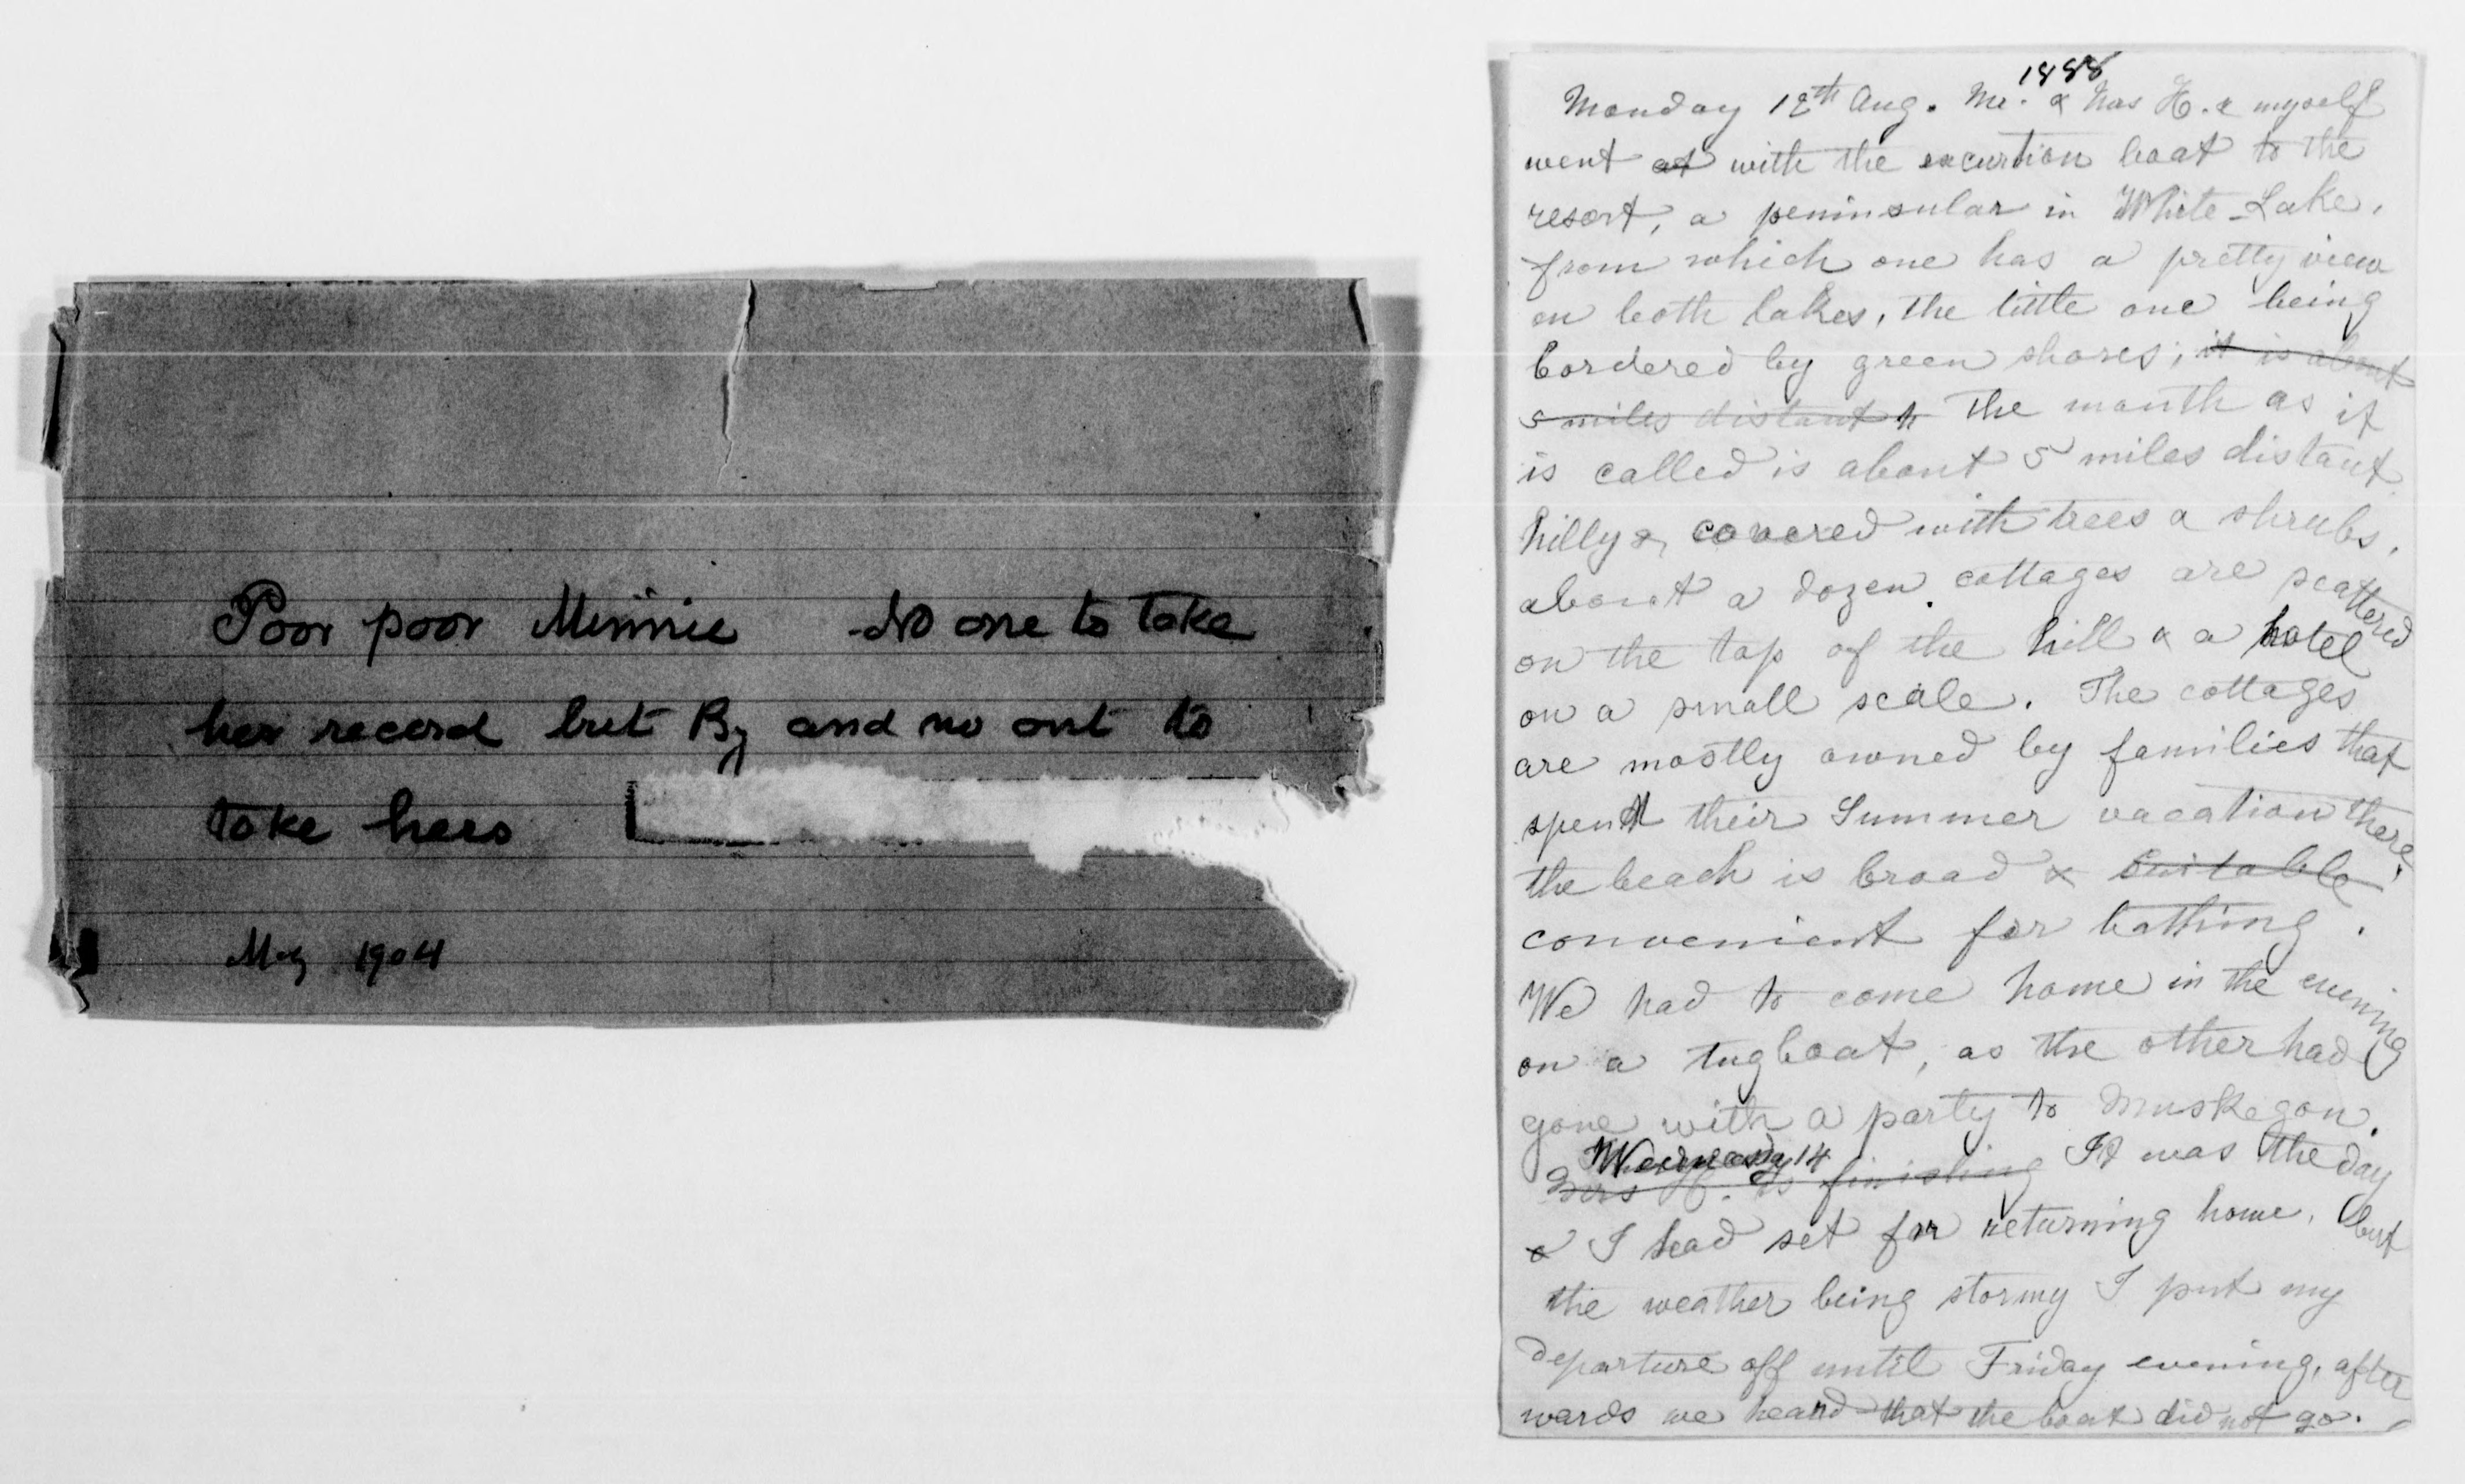 Poor poor Minnie No one to take
her record but By and no ont to
take hers
May 1904
1888
Monday 12th Aug. Mr. & Mrs H. & myself
went at with the excurtion boat to the
resort, a peninsular in White-Lake,
from which one has a pretty view
on both lakes, the little one being
bordered by green shores; it is about
5 miles distant h The mouth as it
is called is about 5 miles distant
hilly & covered with trees & shrubs,
about a dozen cottages are scattered
on the top of the hill & a hotel
on a small scale. The cottages
are mostly owned by families that
spend their Summer vacation there.
the beach is broad & suitable
convenient for bathing.
We had to come home in the evening
on a tugboat, as the other had
gone with a party to Muskegon.
Wednesday 14
Mrs H. is finishing It was the day
& I had set for returning home, but
the weather being stormy I put my
departure off until Friday evening, after
wards we heard that the boat did not go.